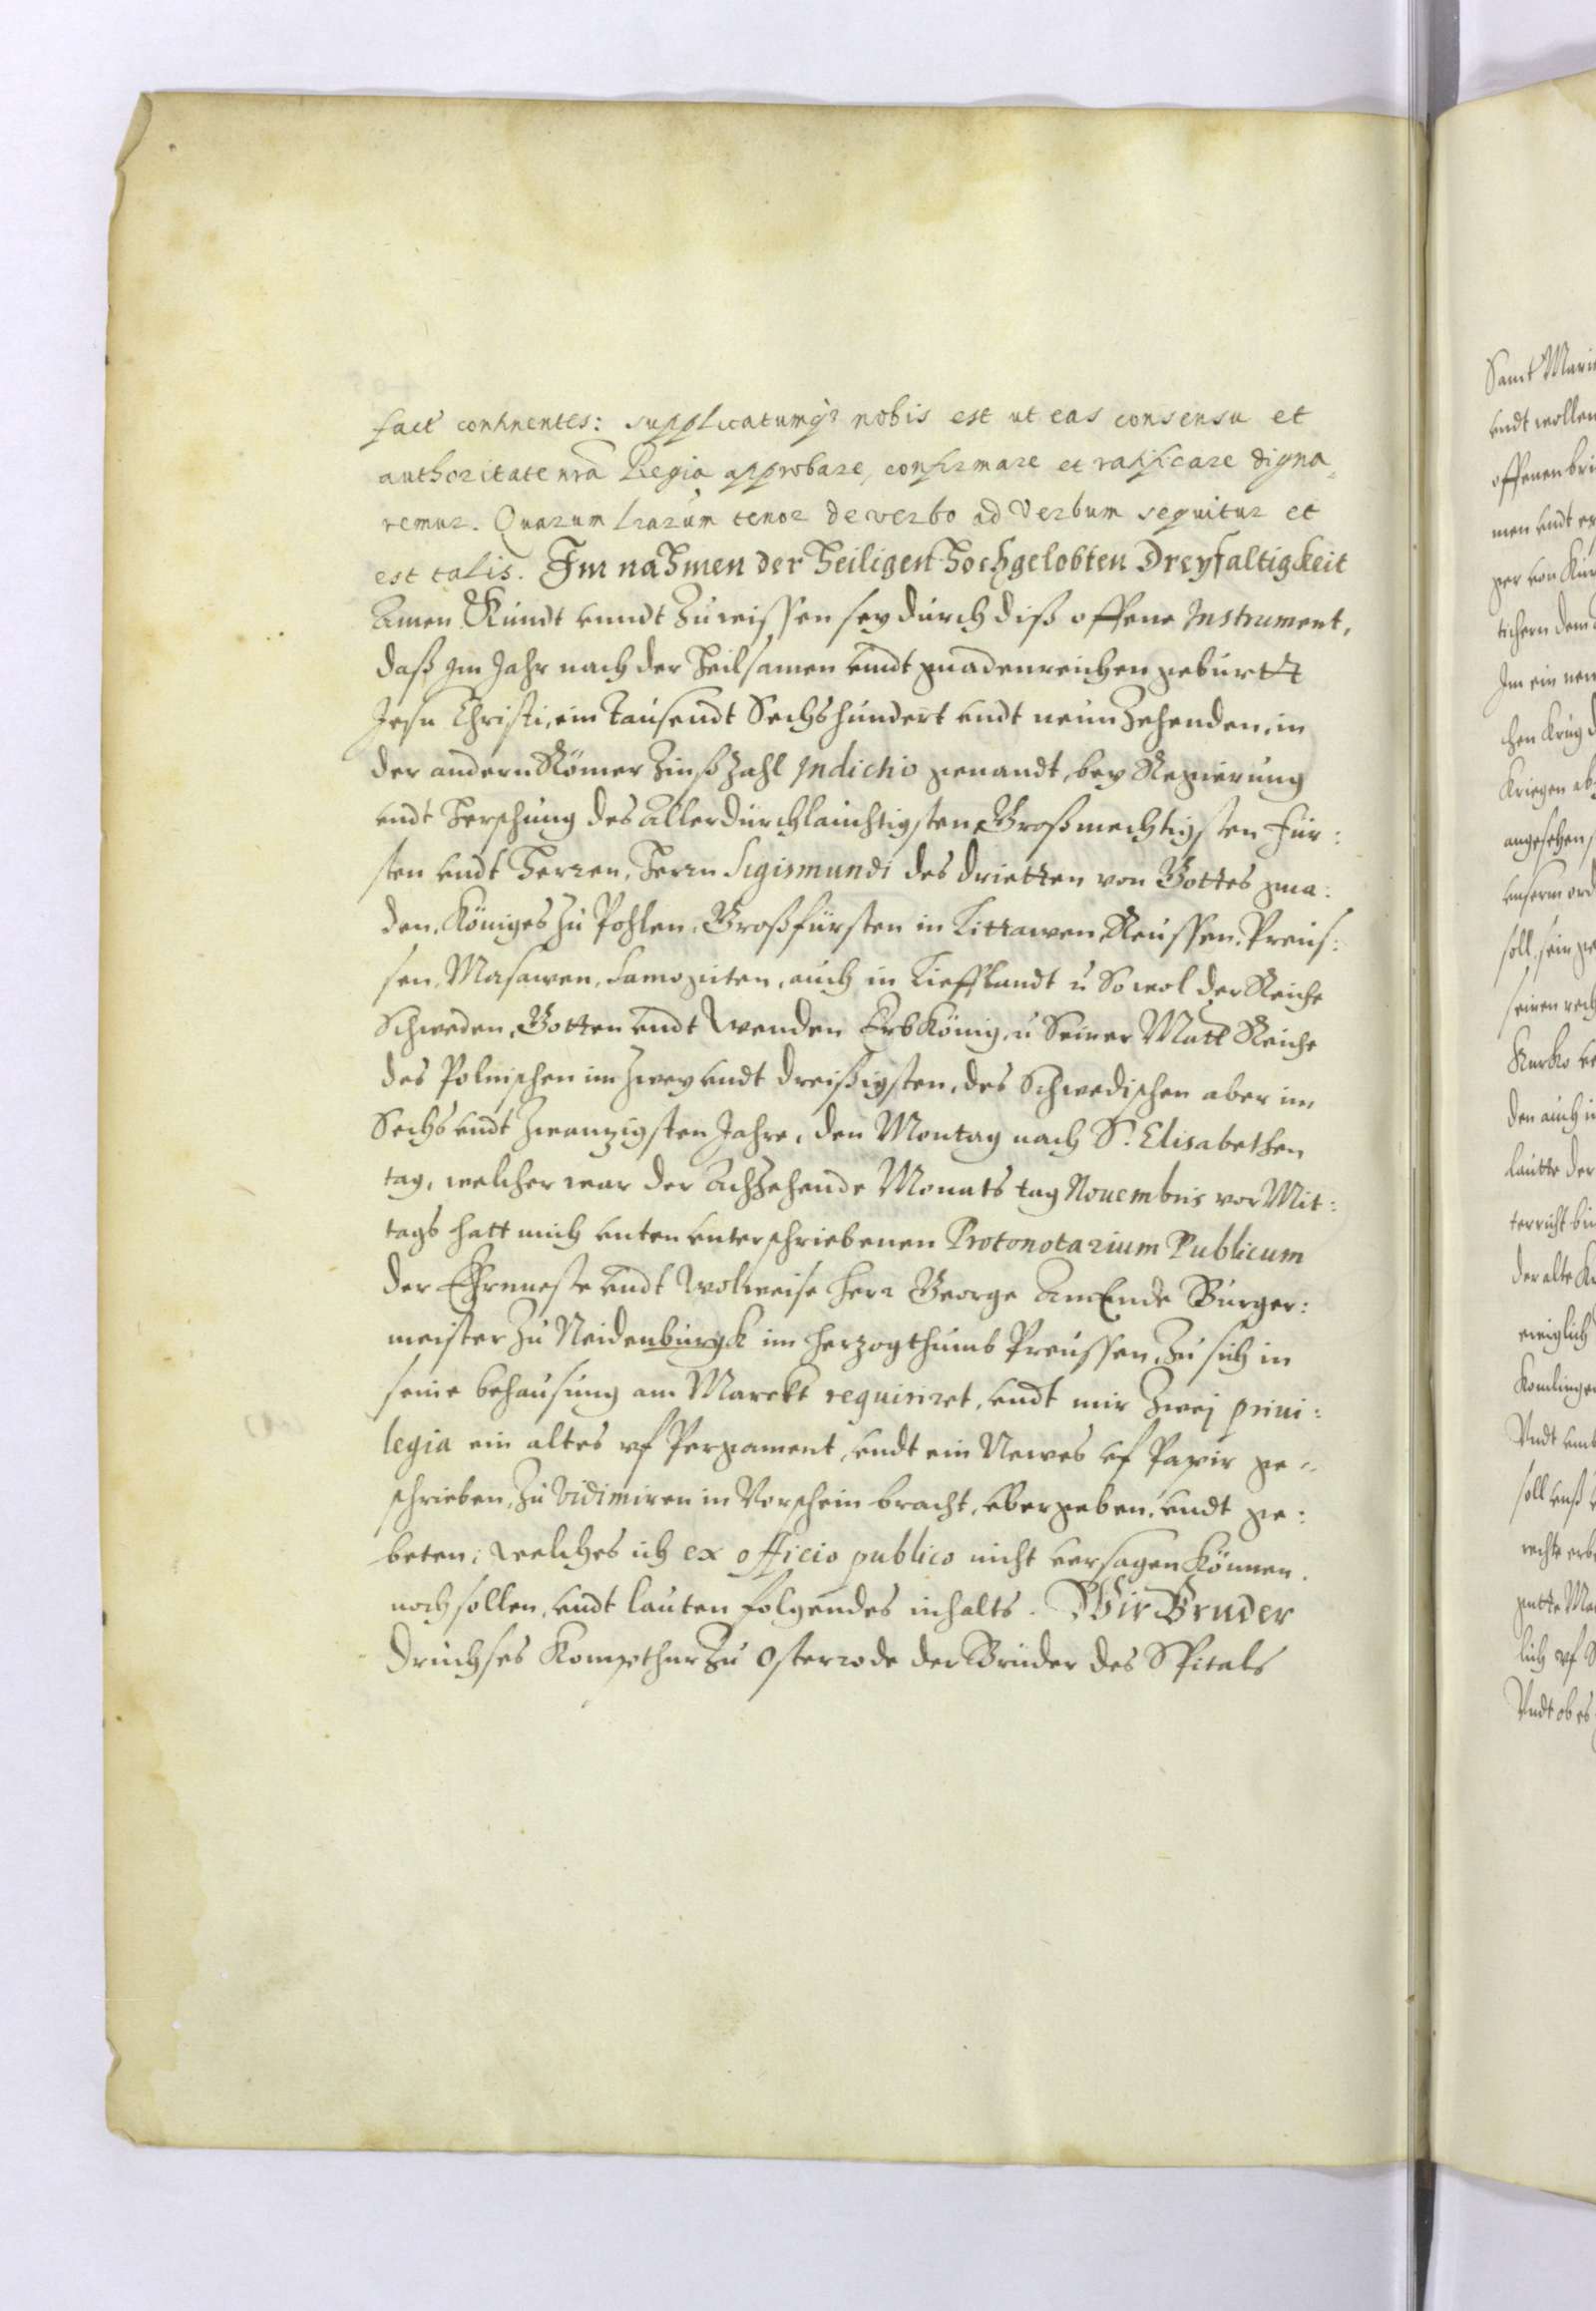 fact continentes: supplicatumq3 nobis est ut eas consensu et
authoritate nrã Regia approbare, confirmare et ratificare digna=
remur. Quarum lrarum tenor de verbo ad verbum sequitur et
est talis. Im nahmen der Heiligen Hochgelobten Dreyfaltigkeit
Amen Kundt vnndt Zuwissen sey durch diß offene Instrument,
daß Im Jahr nach der Heilsamen vndt gnadenreichen geburtt
Jesu Christi, ein Tausendt Sechshundert vndt neun Zehenden, in
der andern Römer Zinß Zahl Indictio genandt, bey Regierung
vndt Herschung des Allerdurchlauchtigsten Großmechtigsten Für:
sten vndt Herren, Herrn Sigismundi des drietten von Gottes gna:
den, Königes zu Pohlen, Großfürsten in Littawen, Reussen, Preus:
sen, Masawen, Samogiten, auch in Liefflandt u Sowol der Reiche
Schweden, Gotten vndt Wenden Erb König, u Seiner Matt Reiche
des Polnischen im Zwey vndt dreißigsten, des Schwedischen aber im
Sechs vndt Zwanzigsten Jahre, den Montag nach S. Elisabethen
tag, welcher war der Achzehende Monats tag Nouembris vor Mit:
tags hatt mich vnten vnterschriebenen Protonotarium Publicum
der Ehrnueste vndt Wolweise Herr George AmEnde Burger:
meister zu Neidenburgk im Herzogthumb Preussen, Zu sich in
seine behausung am Marckt requiriret, vndt mir Zwej priui:
legia ein altes vf Pergament, vndt ein Newes vf Papir ge=
schrieben, Zu vidimiren in Vorschein bracht, vbergeben, vndt ge:
beten; welches ich ex officio publico nicht versagen Können.
noch sollen, vndt lauten folgendes inhalts. Wir Bruder
Druchses Kompthur Zu Osterrode der Brüder des Spitals